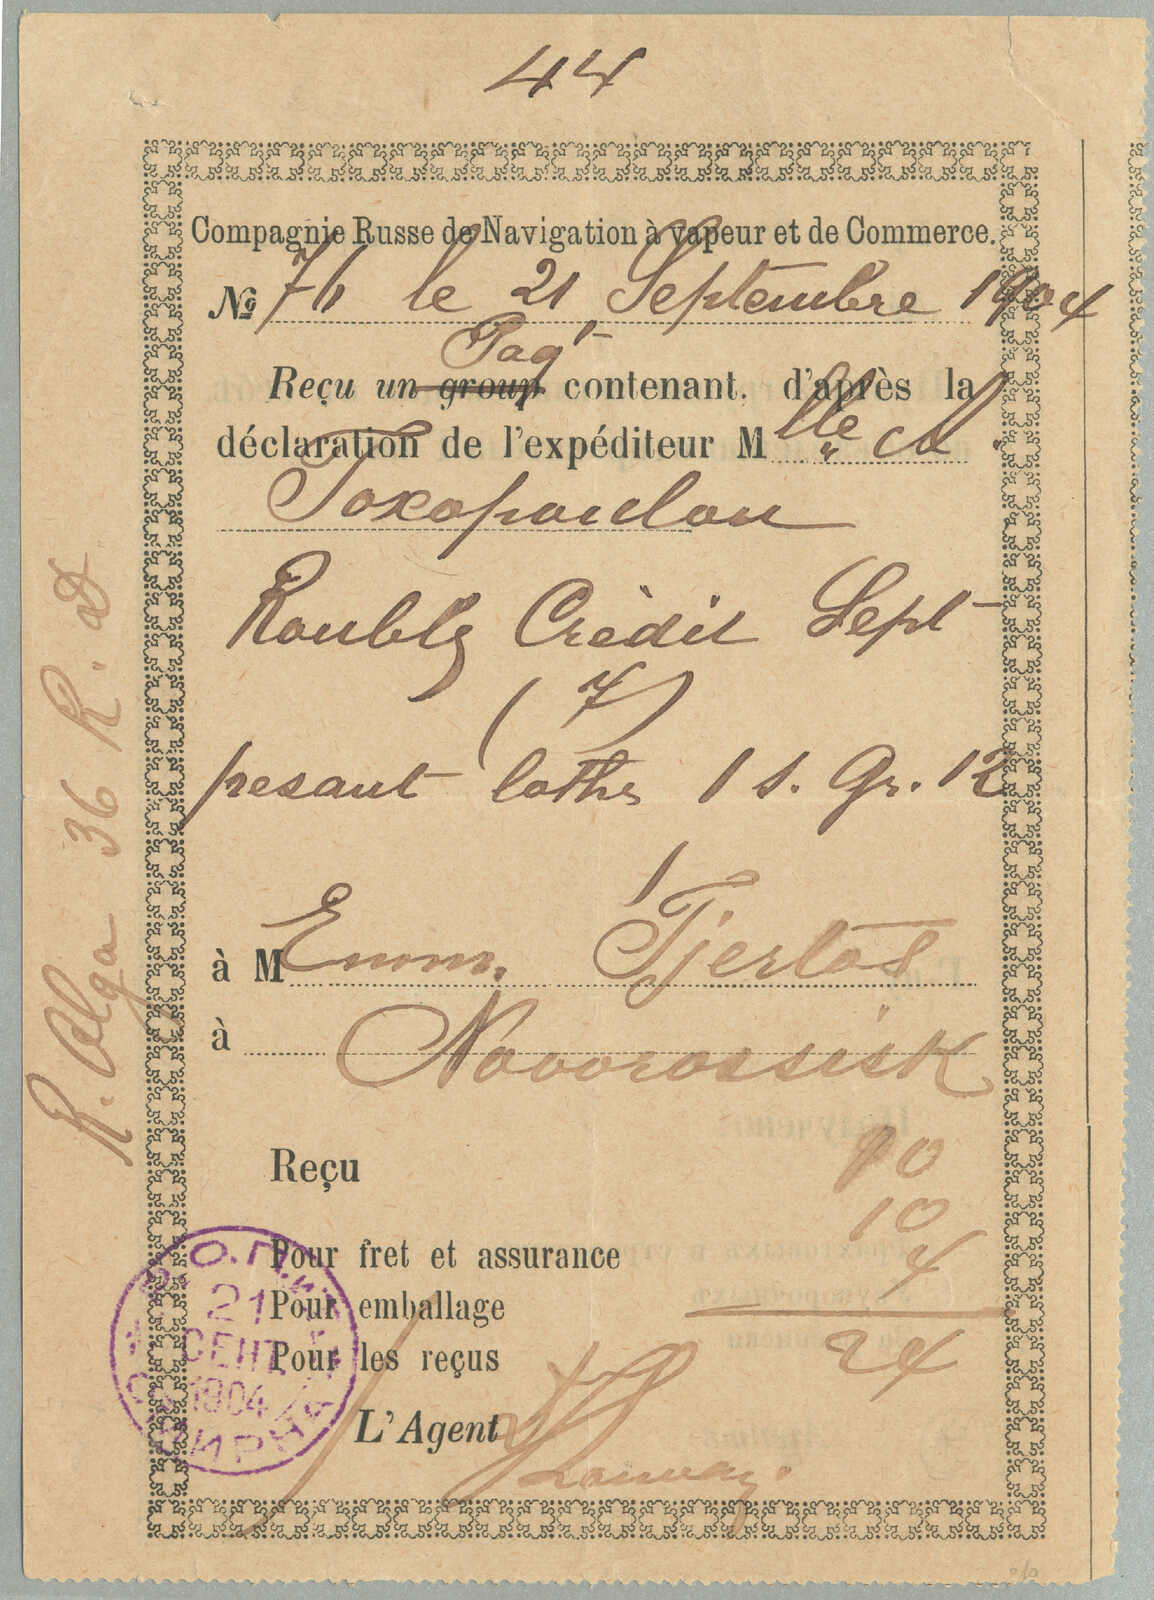 44
Compagnie Russe de Navigation à vapeur et de Commerce.
№ 76 le 21 Septembre 1904
Paq^t
Reçu un group contenant. d'après la
déclaration de l'expéditeur M lle A.
Toxopoulou
Roubls Crèdit Sept
(7)
pesant loths 1 s. Gr. 12
à M Emm. Tjertos
à Novorossisk
Reçu 10
10
Pour fret et assurance 4
Pour emballage
Pour les reçus 24
L'Agent
R. Olga 36 R. D
Р.О.П.и Т.
21
СЕНТ.
1904
СМИРНА